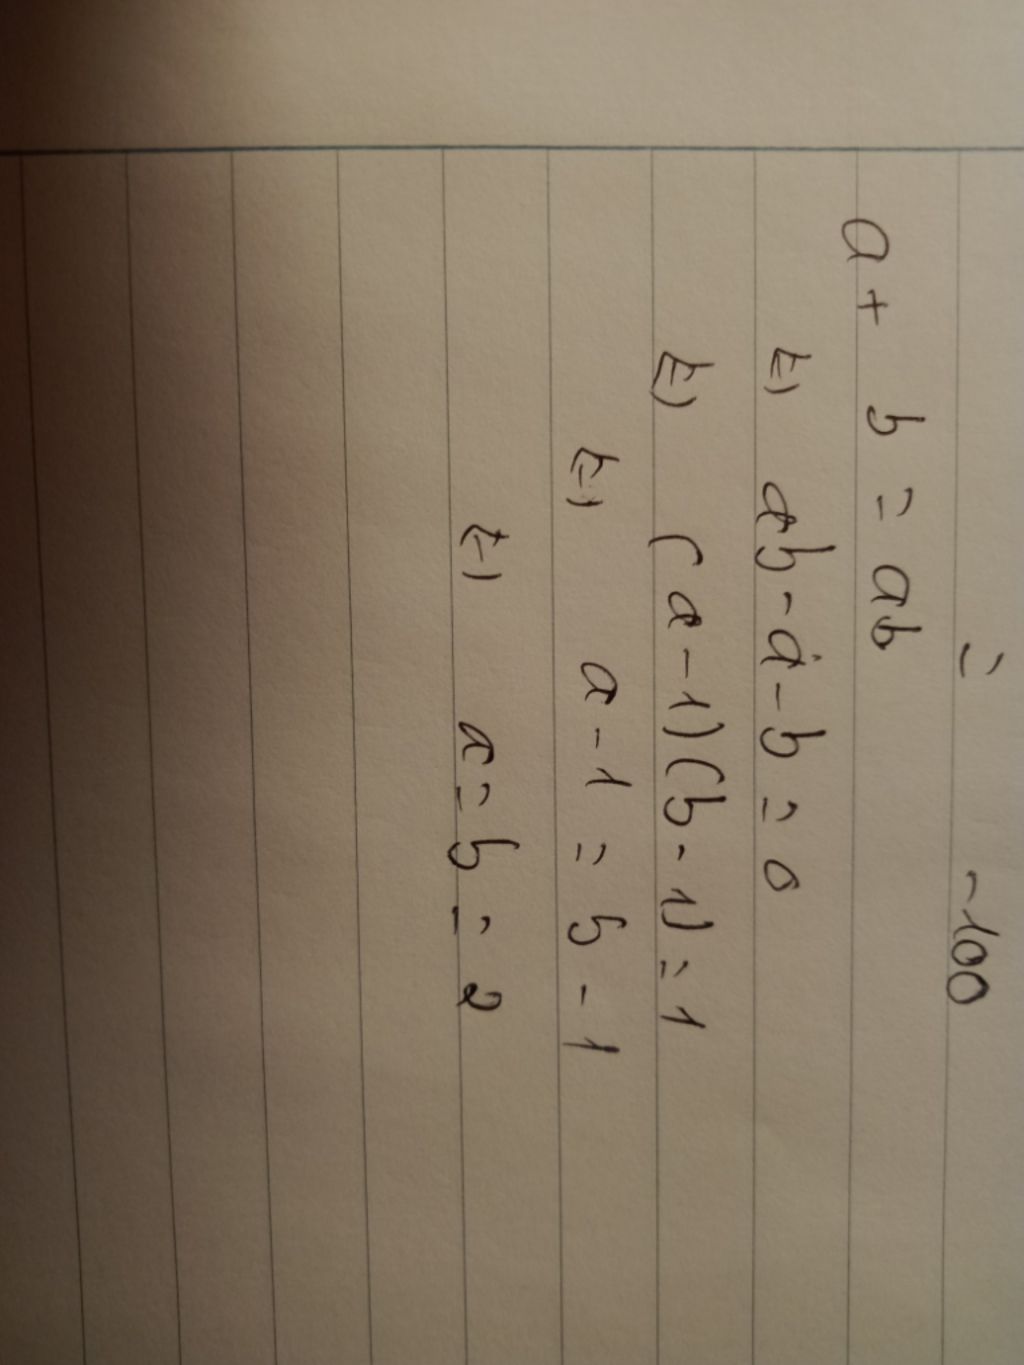 = -100
a + b = ab
⇔ ab - a - b = 0
⇔ (a - 1)(b - 1) = 1
⇔ a - 1 = b - 1
⇔ a = b = 2